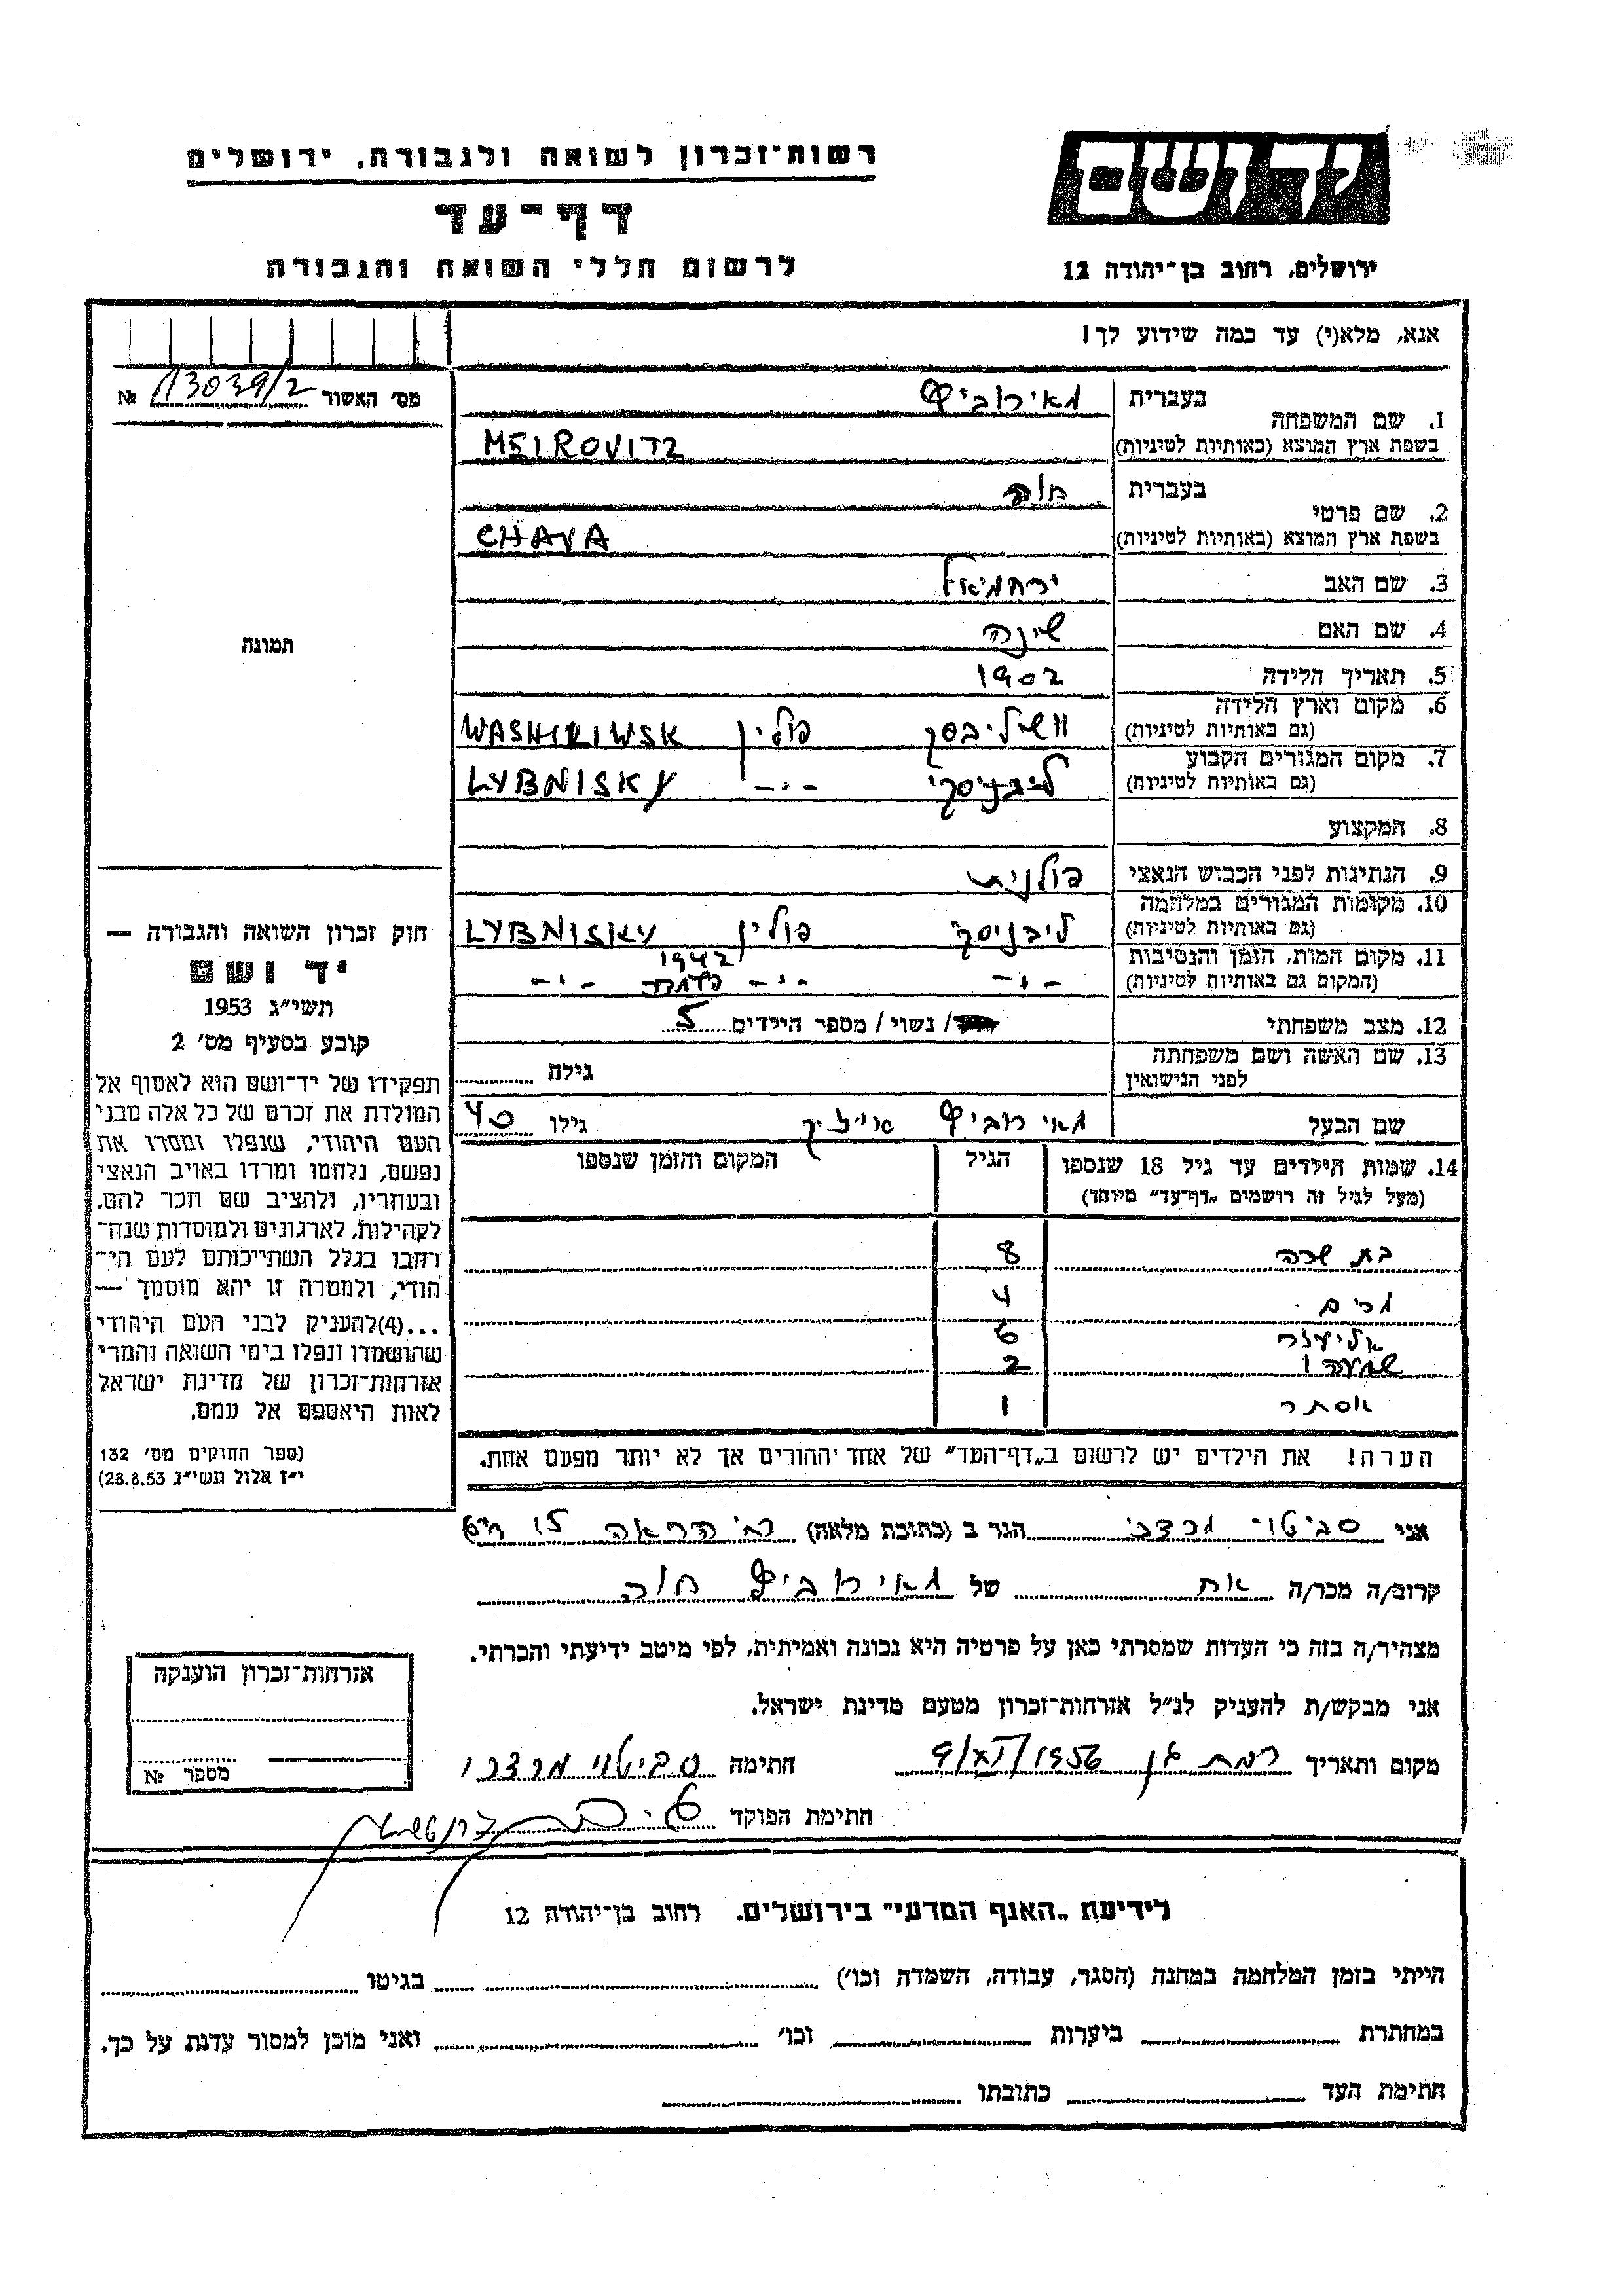 רשות־זכרון לשואה ולגבורה, ירושלים
דף־עד
לרשום חללי השואה והגבורה
יד ושם
ירושלים, רחוב בן־יהודה 12
אנא, מלא(י) עד כמה שידוע לך!
מס׳ האשור 13039/2 №
תמונה
1. שם המשפחה
בעברית מאירוביץ
בשפת ארץ המוצא (באותיות לטיניות) MEIROVITZ
2. שם פרטי
בעברית חוה
בשפת ארץ המוצא (באותיות לטיניות) CHAVA
3. שם האב ירחמיאל
4. שם האם שינה
5. תאריך הלידה 1902
6. מקום וארץ הלידה
(גם באותיות לטיניות) פולין
7. מקום המגורים הקבוע
(גם באותיות לטיניות) ליבניסקי -״- LYBNISKY
8. המקצוע
9. הנתינות לפני הכבוש הנאצי פולנית
10. מקומות המגורים במלחמה
(גם באותיות לטיניות) ליבניסקי פולין LYBNISKY
11. מקום המות, הזמן והנסיבות 1942
(המקום גם באותיות לטיניות) -״- -״- -״-
12. מצב משפחתי / נשוי / מספר הילדים 5
13. שם האשה ושם משפחתה
לפני הנישואין גילה
שם הבעל מאירוביץ גילו 40
14. שמות הילדים עד גיל 18 שנספו
(מעל לגיל זה רושמים „דף־עד״ מיוחד)
הגיל
המקום והזמן שנספו
בת שבע 8
מרים 4
אליעזר 6
שמעון 2
אסתר 1
הערה! את הילדים יש לרשום ב„דף־העד״ של אחד ההורים אך לא יותר מפעם אחת.
חוק זכרון השואה והגבורה —
יד ושם
תשי״ג 1953
קובע בסעיף מס׳ 2
תפקידו של יד־ושם הוא לאסוף אל
המולדת את זכרם של כל אלה מבני
העם היהודי, שנפלו ומסרו את
נפשם, נלחמו ומרדו באויב הנאצי
ובעוזריו, ולהציב שם וזכר להם,
לקהילות, לארגונים ולמוסדות שנח־
רבו בגלל השתייכותם לעם הי־
הודי, ולמטרה זו יהא מוסמך —
...(4)להעניק לבני העם היהודי
שהושמדו ונפלו בימי השואה והמרי
אזרחות־זכרון של מדינת ישראל
לאות היאספם אל עמם.
(ספר החוקים מס׳ 132
י״ז אלול תשי״ג 28.8.53)
אני סביטוי מרדכי הגר ב (כתובת מלאה) 15
קרוב/ה מכר/ה אח של מאירוביץ חוה
מצהיר/ה בזה כי העדות שמסרתי כאן על פרטיה היא נכונה ואמיתית, לפי מיטב ידיעתי והכרתי.
אני מבקש/ת להעניק לנ״ל אזרחות־זכרון מטעם מדינת ישראל.
מקום ותאריך רמת גן 9/XI/1956 חתימה סביטוי מרדכי
חתימת הפוקד
אזרחות־זכרון הוענקה
מספר №
לידיעת „האגף המדעי״ בירושלים. רחוב בן־יהודה 12
הייתי בזמן המלחמה במחנה (הסגר, עבודה, השמדה וכו׳) בגיטו
במחתרת ביערות וכו׳ ואני מוכן למסור עדות על כך.
חתימת העד כתובתו